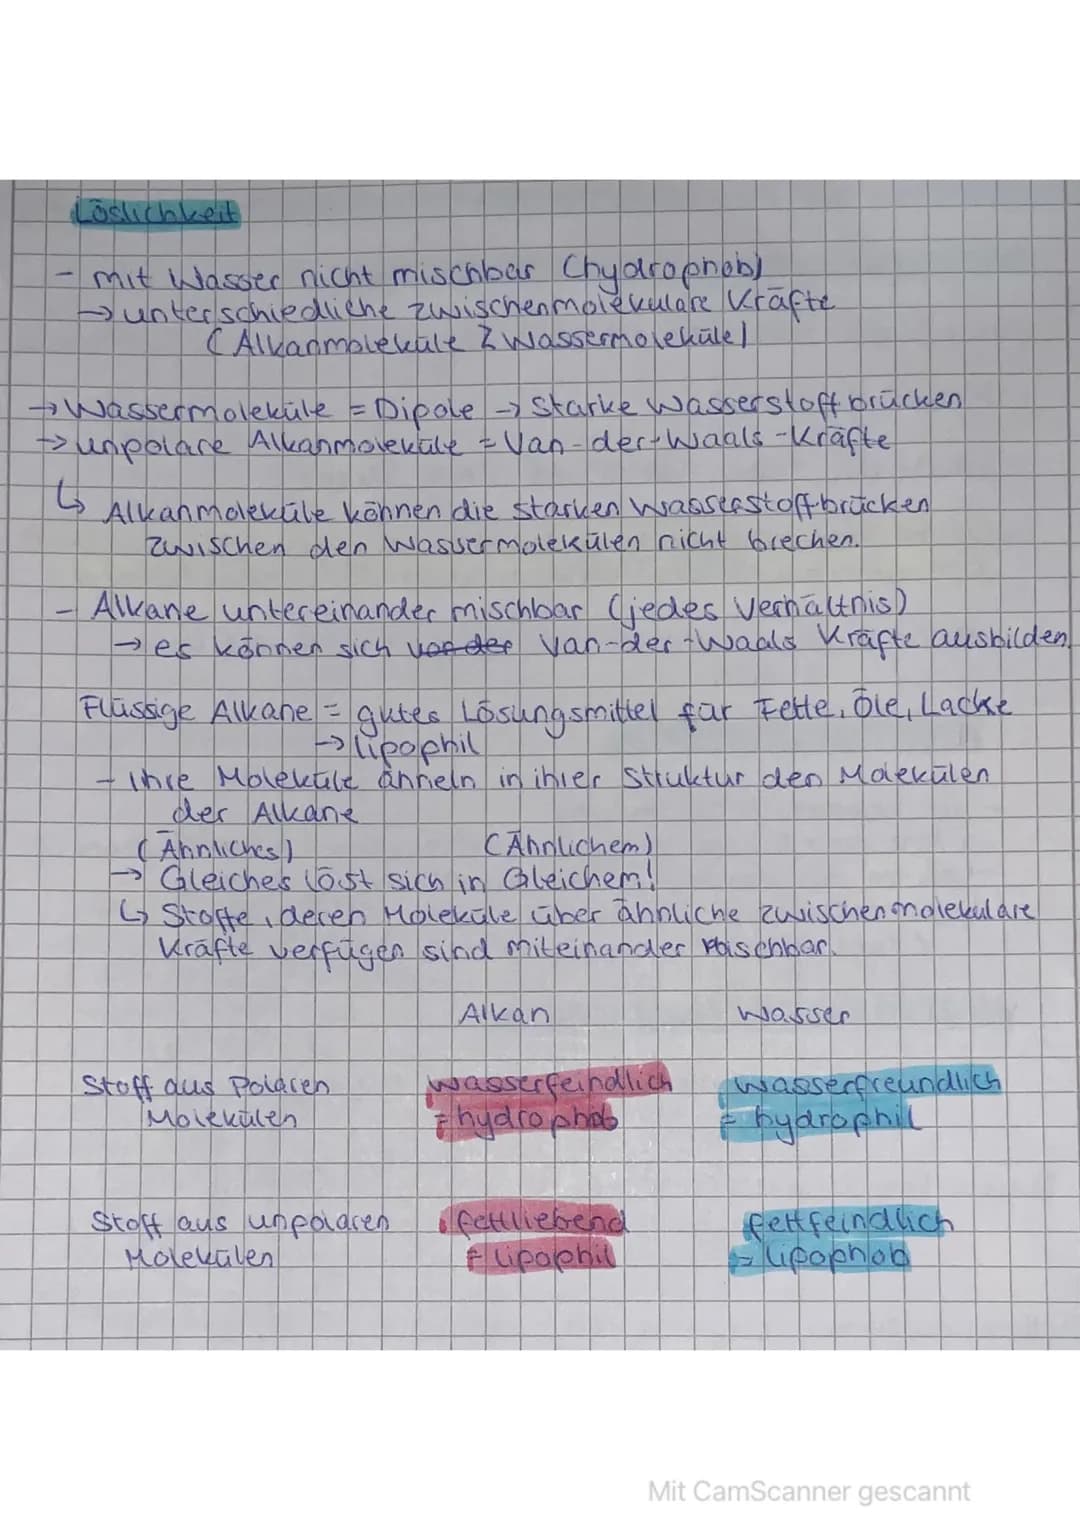 Löslichkeit
- mit Wasser nicht mischbar (hydrophob)
→ unterschiedliche zwischenmolekulare Kräfte
(Alkanmoleküle & Wassermoleküle)
→ Wassermoleküle = Dipole → starke Wasserstoffbrücken
→ unpolare Alkanmoleküle = Van-der-Waals-Kräfte
↳ Alkanmoleküle können die starken Wasserstoffbrücken
zwischen den Wassermolekülen nicht brechen.
- Alkane untereinander mischbar (jedes Verhältnis)
→ es können sich van-der-Waals Kräfte ausbilden
Flüssige Alkane = gutes Lösungsmittel für Fette, Öle, Lacke
→ lipophil
- Ihre Moleküle ähneln in ihrer Struktur den Molekülen
der Alkane
(Ähnliches) (Ähnlichem)
→ Gleiches löst sich in Gleichem!
↳ Stoffe, deren Moleküle über ähnliche zwischenmolekulare
Kräfte verfügen sind miteinander mischbar.
Alkan Wasser
Stoff aus Polaren wasserfeindlich wasserfreundlich
Molekülen = hydrophob = hydrophil
Stoff aus unpolaren fettliebend fettfeindlich
Molekülen = lipophil = lipophob
Mit CamScanner gescannt